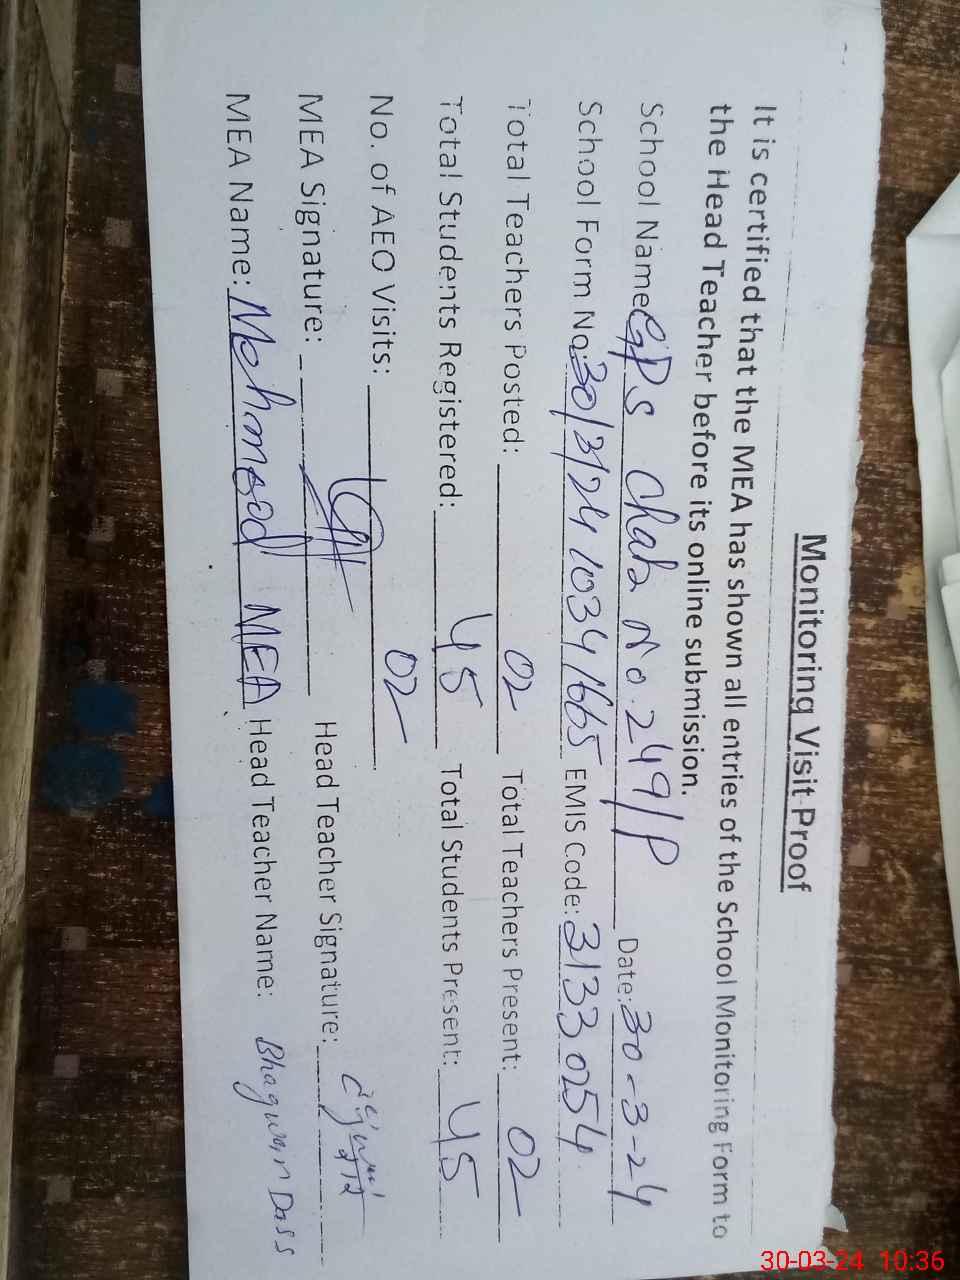 Monitoring Visit Proof
It is certified that the MEA has shown all entries of the School Monitoring Form to
the Head Teacher before its online submission.
School Name: GPS Chak No. 249/P Date: 30-3-24
School Form No: 30/3/24 1034 1665 EMIS Code: 31330254
Total Teachers Posted: 02 Total Teachers Present: 02
Total Students Registered: 45 Total Students Present: 45
No. of AEO Visits: 02
MEA Signature: Head Teacher Signature:
MEA Name: Mehmood MEA Head Teacher Name: Bhagwan Dass
30-03-24 10:36